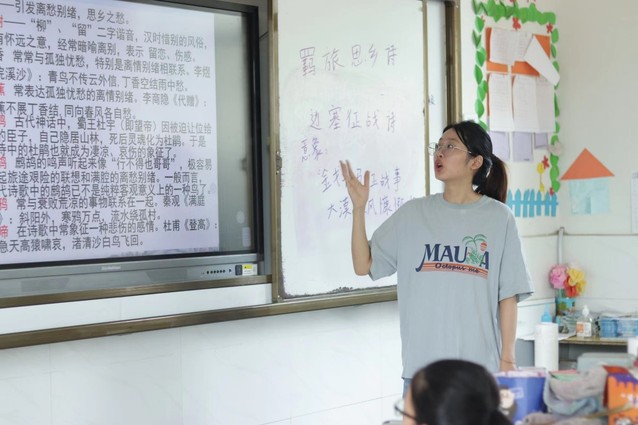 引发离愁别绪，思乡之愁。
——“柳”、“留”二字谐音，汉时惜别的风俗，
有怀远之意，经常暗喻离别，表示 留恋，伤感。
香 常常与孤独忧愁，特别是离情别绪相联系。李煜
浣溪沙》：青鸟不传云外信，丁香空结雨中愁。
常表达孤独忧愁的离情别绪。李商隐《代赠》：
蕉不展丁香结，同向春风各自愁。
古代神话中，蜀王杜宇（即望帝）因被迫让位给
的臣子，自己隐居山林，死后灵魂化为杜鹃。于是
中的杜鹃也就成为凄凉、哀伤的象征了。
鹧鸪的鸣声听起来像 “行不得也哥哥”，极容易
起旅途艰险的联想和满腔的离愁别绪。一般而言，
代诗歌中的鹧鸪已不是纯粹客观意义上的一种鸟了。
常与衰败荒凉的事物联系在一起。秦观《满庭
：斜阳外，寒鸦万点，流水绕孤村。
在诗歌中常象征一种悲伤的感情。杜甫《登高》：
急天高猿啸哀，渚清沙白鸟飞回。
羁旅思乡诗
边塞征战诗
意象：
战事
大漠
MAU
Octopus me